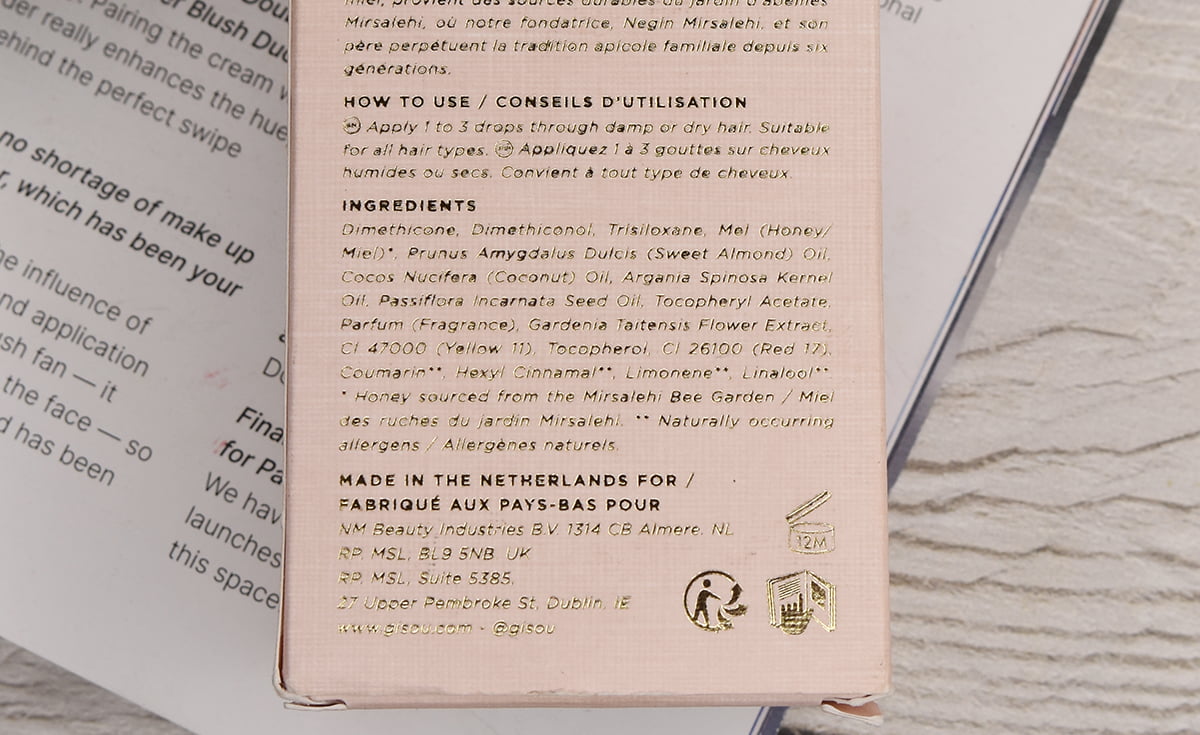 Dou
Pairing the cream w
er Blush Duo
der really enhances the hue
ehind the perfect swipe
no shortage of make up
r, which has been your
he influence of
nd application
ush fan — it
the face — so
d has been
Do
Fina
for Pa
We hav
launches
this space
onal
miel, provient des sources durables du jardin d'abeilles
Mirsalehi, où notre fondatrice, Negin Mirsalehi, et son
père perpétuent la tradition apicole familiale depuis six
générations.
HOW TO USE / CONSEILS D'UTILISATION
EN Apply 1 to 3 drops through damp or dry hair. Suitable
for all hair types. FR Appliquez 1 à 3 gouttes sur cheveux
humides ou secs. Convient à tout type de cheveux.
INGREDIENTS
Dimethicone, Dimethiconol, Trisiloxane, Mel (Honey/
Miel)*, Prunus Amygdalus Dulcis (Sweet Almond) Oil,
Cocos Nucifera (Coconut) Oil, Argania Spinosa Kernel
Oil, Passiflora Incarnata Seed Oil, Tocopheryl Acetate,
Parfum (Fragrance), Gardenia Taitensis Flower Extract,
CI 47000 (Yellow 11), Tocopherol, CI 26100 (Red 17),
Coumarin**, Hexyl Cinnamal**, Limonene**, Linalool**
* Honey sourced from the Mirsalehi Bee Garden / Miel
des ruches du jardin Mirsalehi. ** Naturally occurring
allergens / Allergènes naturels.
MADE IN THE NETHERLANDS FOR /
FABRIQUÉ AUX PAYS-BAS POUR
NM Beauty Industries B.V. 1314 CB Almere, NL
RP, MSL, BL9 5NB UK
RP, MSL, Suite 5385,
27 Upper Pembroke St, Dublin, IE
www.gisou.com - @gisou
12M